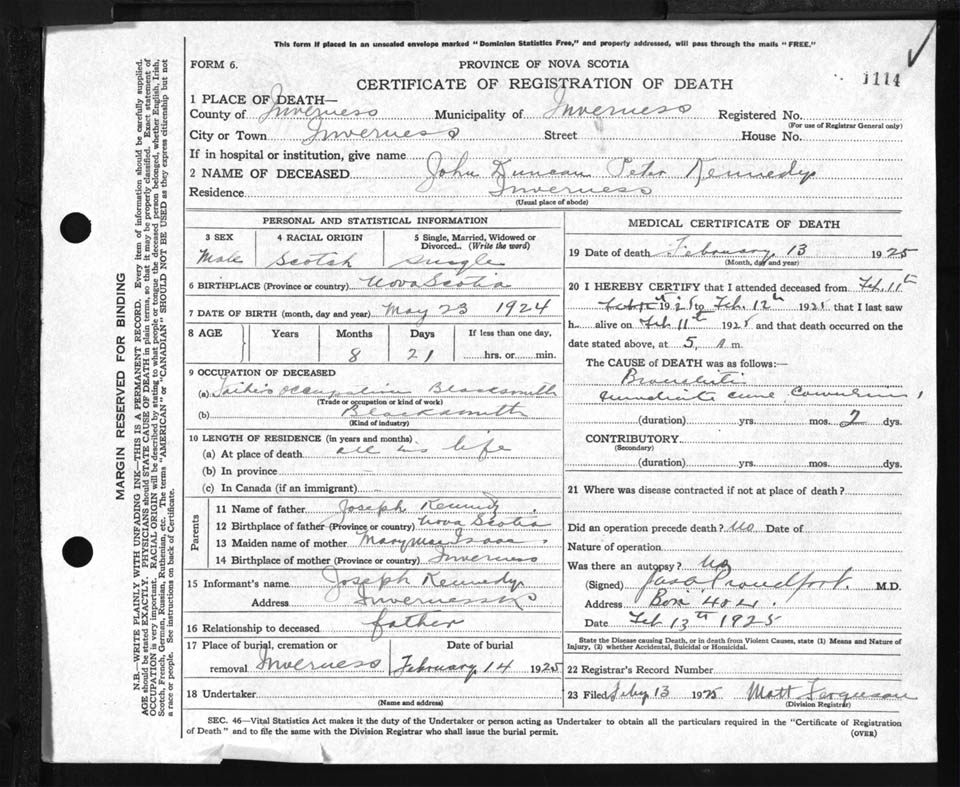 This form if placed in an unsealed envelope marked "Dominion Statistics Free," and properly addressed, will pass through the mails "FREE."
FORM 6.
PROVINCE OF NOVA SCOTIA
CERTIFICATE OF REGISTRATION OF DEATH
1114
1 PLACE OF DEATH—
County of Inverness Municipality of Inverness Registered No.
(For use of Registrar General only)
City or Town Inverness Street House No.
If in hospital or institution, give name
2 NAME OF DECEASED John Duncan Peter Kennedy
Residence Inverness
(Usual place of abode)
MARGIN RESERVED FOR BINDING
N.B.—WRITE PLAINLY WITH UNFADING INK—THIS IS A PERMANENT RECORD. Every item of information should be carefully supplied.
AGE should be stated EXACTLY. PHYSICIANS should STATE CAUSE OF DEATH in plain terms, so that it may be properly classified. Exact statement of
OCCUPATION is very important. RACIAL ORIGIN will be described by stating to what people or tongue the deceased person belonged, whether English, Irish,
Scotch, French, German, Russian, Ruthenian, etc. The terms "AMERICAN" or "CANADIAN" SHOULD NOT BE USED as they express citizenship but not
a race or people. See instructions on back of Certificate.
PERSONAL AND STATISTICAL INFORMATION
3 SEX
Male
4 RACIAL ORIGIN
Scotch
5 Single, Married, Widowed or
Divorced.. (Write the word)
Single
6 BIRTHPLACE (Province or country) Nova Scotia
7 DATE OF BIRTH (month, day and year) May 23 1924
8 AGE Years Months Days If less than one day,
8 21 hrs. or min.
9 OCCUPATION OF DECEASED
(a) Father's occupation Blacksmith
(Trade or occupation or kind of work)
(b) Blacksmith
(Kind of industry)
10 LENGTH OF RESIDENCE (in years and months)
(a) At place of death all his life
(b) In province
(c) In Canada (if an immigrant)
Parents
11 Name of father Joseph Kennedy
12 Birthplace of father (Province or country) Nova Scotia
13 Maiden name of mother Mary MacIsaac
14 Birthplace of mother (Province or country) Inverness
15 Informant's name Joseph Kennedy
Address Inverness
16 Relationship to deceased father
17 Place of burial, cremation or
removal Inverness
Date of burial
February 14 1925
18 Undertaker
(Name and address)
MEDICAL CERTIFICATE OF DEATH
19 Date of death February 13 1925
(Month, day and year)
20 I HEREBY CERTIFY that I attended deceased from Feb. 11th
1925 to Feb. 12th 1925 that I last saw
h alive on Feb 11th 1925 and that death occurred on
date stated above, at 5 A m.
The CAUSE of DEATH was as follows:
Bronchitis
immediate cause Convulsions
(duration) yrs. mos. 2 dys.
CONTRIBUTORY
(Secondary)
(duration) yrs. mos. dys.
21 Where was disease contracted if not at place of death?
Did an operation precede death? No Date of
Nature of operation
Was there an autopsy? No
(Signed) Proudfoot M.D.
Address Box
Date Feb 13th 1925
State the Disease causing Death, or in death from Violent Causes, state (1) Means and Nature of
Injury, (2) whether Accidental, Suicidal or Homicidal.
22 Registrar's Record Number
23 Filed Feby 13 1925 Matt Ferguson
(Division Registrar)
SEC. 46—Vital Statistics Act makes it the duty of the Undertaker or person acting as Undertaker to obtain all the particulars required in the "Certificate of Registration
of Death" and to file the same with the Division Registrar who shall issue the burial permit.
(OVER)